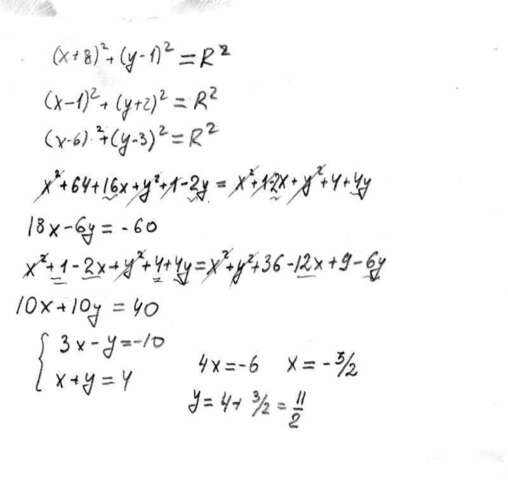 (x+8)²+(y-1)²=R²
(x-1)²+(y+2)²=R²
(x-6)²+(y-3)²=R²
x²+64+16x+y²+1-2y=x²+1-2x+y²+4+4y
18x-6y=-60
x²+1-2x+y²+4+4y=x²+y²+36-12x+9-6y
10x+10y=40
{ 3x-y=-10
x+y=4
4x=-6 x=-3/2
y=4+3/2=11/2